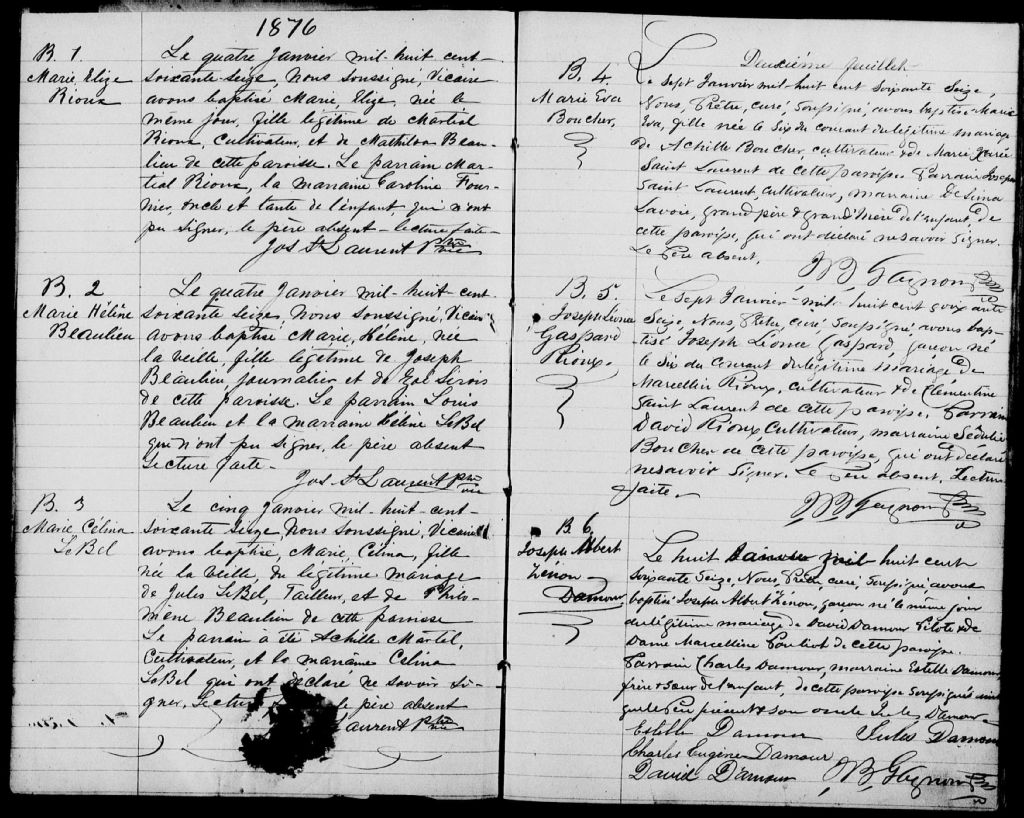 1876
B. 1
Marie Elize
Rioux
Le quatre Janvier mil-huit cent-
soixante-seize, Nous soussigné, Vicaire
avons baptisé Marie, Elize, née le
même jour, fille légitime de Martial
Rioux, Cultivateur, et de Mathilda Beau-
lieu de cette paroisse. Le parrain Mar-
tial Rioux, la marraine Caroline Four-
nier, oncle et tante de l'enfant, qui n'ont
pu signer, le père absent - lecture faite -
Jos St Laurent Ptre
vic
B. 2
Marie Hélène
Beaulieu
Le quatre Janvier mil-huit cent-
soixante seize, nous soussigné, Vicaire
avons baptisé Marie, Hélène, née
la veille, fille légitime de Joseph
Beaulieu, Journalier et de Zoé Sirois
de cette paroisse. Le parrain Louis
Beaulieu et la marraine Hélène LeBel
qui n'ont pu signer, le père absent
Lecture faite -
Jos. St Laurent Ptre
vic
B. 3
Marie, Célina
LeBel
Le cinq Janvier mil-huit-cent-
soixante seize Nous soussigné, Vicaire
avons baptisé, Marie, Célina, fille
née la veille, du légitime mariage
de Jules LeBel, Tailleur, et de Philo-
mène Beaulieu de cette paroisse
Le parrain a été Achille Martel,
Cultivateur, et la marraine Célina
LeBel qui ont déclaré ne savoir si-
gner. Lecture le père absent
Laurent Ptre
vic
Deuxième feuillet
B. 4.
Marie Eva
Boucher,
Le Sept Janvier mil-huit cent soixante Seize,
Nous, Prêtre, curé, soussigné, avons baptisé Marie
Eva, fille née le Six du courant du légitime mariage
de Achille Boucher, cultivateur & de Marie
Saint Laurent de cette paroisse. Parrain Joseph
Saint Laurent, cultivateur, marraine
Lavoie, grand père & grand'mère de l'enfant, de
cette paroisse, qui ont déclaré ne savoir signer.
Le Père absent.
Gagnon Ptre
B. 5.
Joseph Léonce
Gaspard
Rioux.
Le Sept Janvier mil-huit cent soixante
Seize, Nous, Prêtre, curé, soussigné, avons bap-
tisé Joseph Léonce Gaspard, garçon né
le six du courant du légitime mariage de
Marcellin Rioux, cultivateur & de Clémentine
Saint Laurent de cette paroisse. Parrain
David Rioux, Cultivateur, marraine Sédulie
Boucher de cette paroisse, qui ont déclaré
ne savoir signer. Le Père absent, Lecture
faite.
Gagnon Ptre
B. 6.
Joseph Albert
Zénon
Damour
Le huit Janvier mil huit cent
soixante Seize, Nous, Prêtre, curé, soussigné avons
baptisé Joseph Albert Zénon, garçon né le même jour
du légitime mariage de David Damour Pilote & de
Dame Marcelline Pouliot de cette paroisse.
Parrain Charles Damour, marraine Estelle Damour
frère & sœur de l'enfant, de cette paroisse soussignés ainsi
que le Père présent & son oncle Jules Damour -
Estelle Damour Jules Damour
Charles Eugène Damour
David D'amour Gagnon Ptre